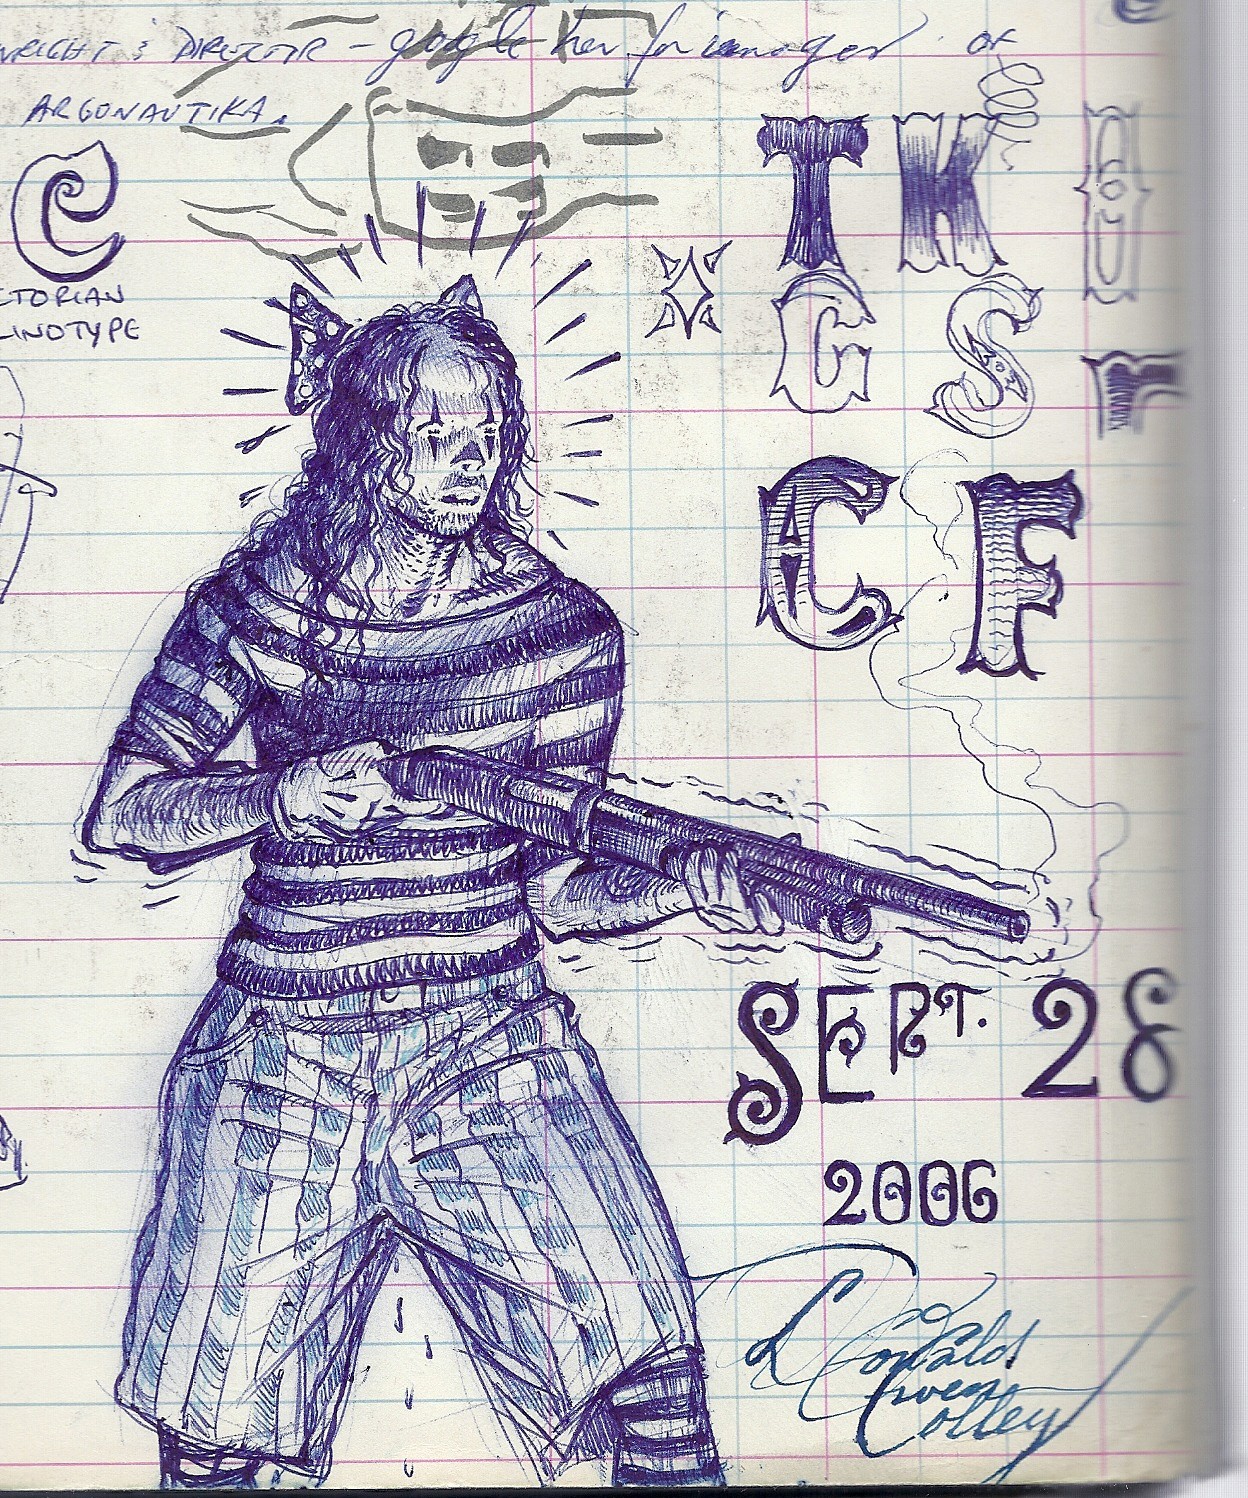 WRIGHT & DIRECTOR – google her for images of
ARGONAUTIKA.
T K
C
G S
CTORIAN
LINOTYPE
C F
SEPT. 28
2006
Donald
Owen
Colley